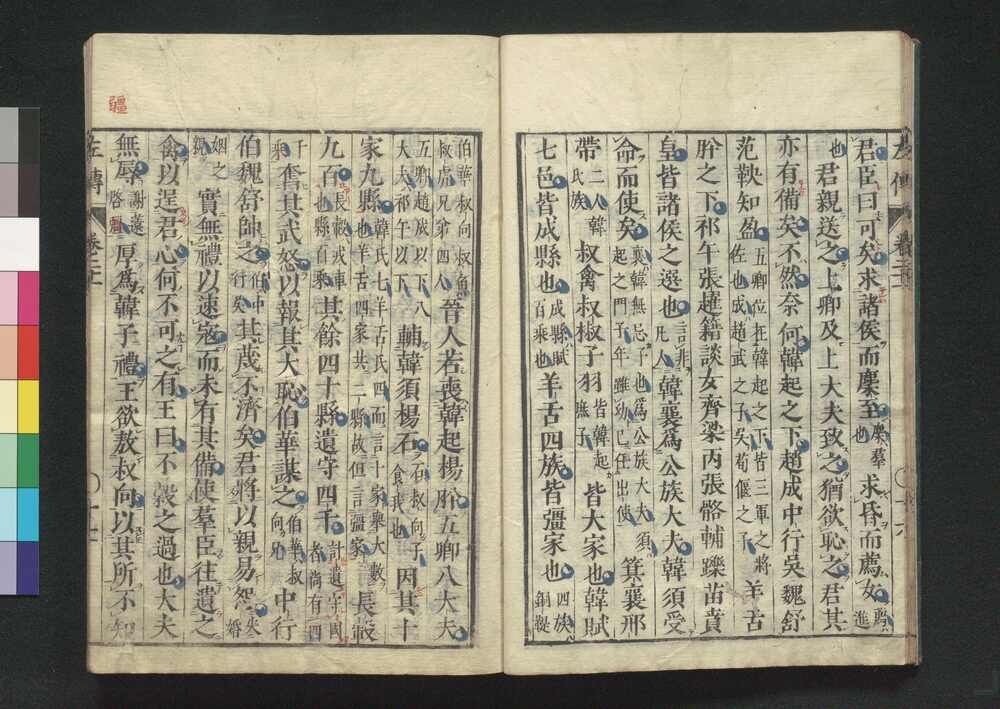 君臣曰可矣求諸侯而麇至麇羣也求昏而薦女薦進
也君親送之上卿及上大夫致之猶欲恥之君其
亦有備矣不然奈何韓起之下趙成中行吳魏舒
范鞅知盈五卿位在韓起之下皆三軍之將佐也成趙武之子吳荀偃之子羊舌
肸之下祁午張趯籍談女齊梁丙張骼輔躒苗賁
皇皆諸侯之選也言非凡人韓襄爲公族大夫韓須受
命而使矣襄韓無忌子也爲公族大夫須起之門子年雖幼已任出使箕襄邢
帶二人韓氏族叔禽叔椒子羽皆韓起庶子皆大家也韓賦
七邑皆成縣也成縣賦百乘也羊舌四族皆彊家也四族銅鞮
伯華叔向叔魚叔虎兄弟四人晉人若喪韓起楊肸五卿八大夫
五卿趙成以下八大夫祁午以下輔韓須楊石石叔向子食我也因其十
家九縣韓氏七羊舌氏四而言十家舉大數也羊舌四家共二縣故但言彊家長轂
九百長轂戎車也縣百乘其餘四十縣遺守四千計遺守國者尚有四
千乘奮其武怒以報其大恥伯華謀之伯華叔向兄中行
伯魏舒帥之伯中行吳其蔑不濟矣君將以親易怨失婚
姻之親實無禮以速寇而未有其備使羣臣往遺之
禽以逞君心何不可之有王曰不穀之過也大夫
無辱謝薳啓彊厚爲韓子禮王欲敖叔向以其所不知
左傳
卷二十一
十六
彊